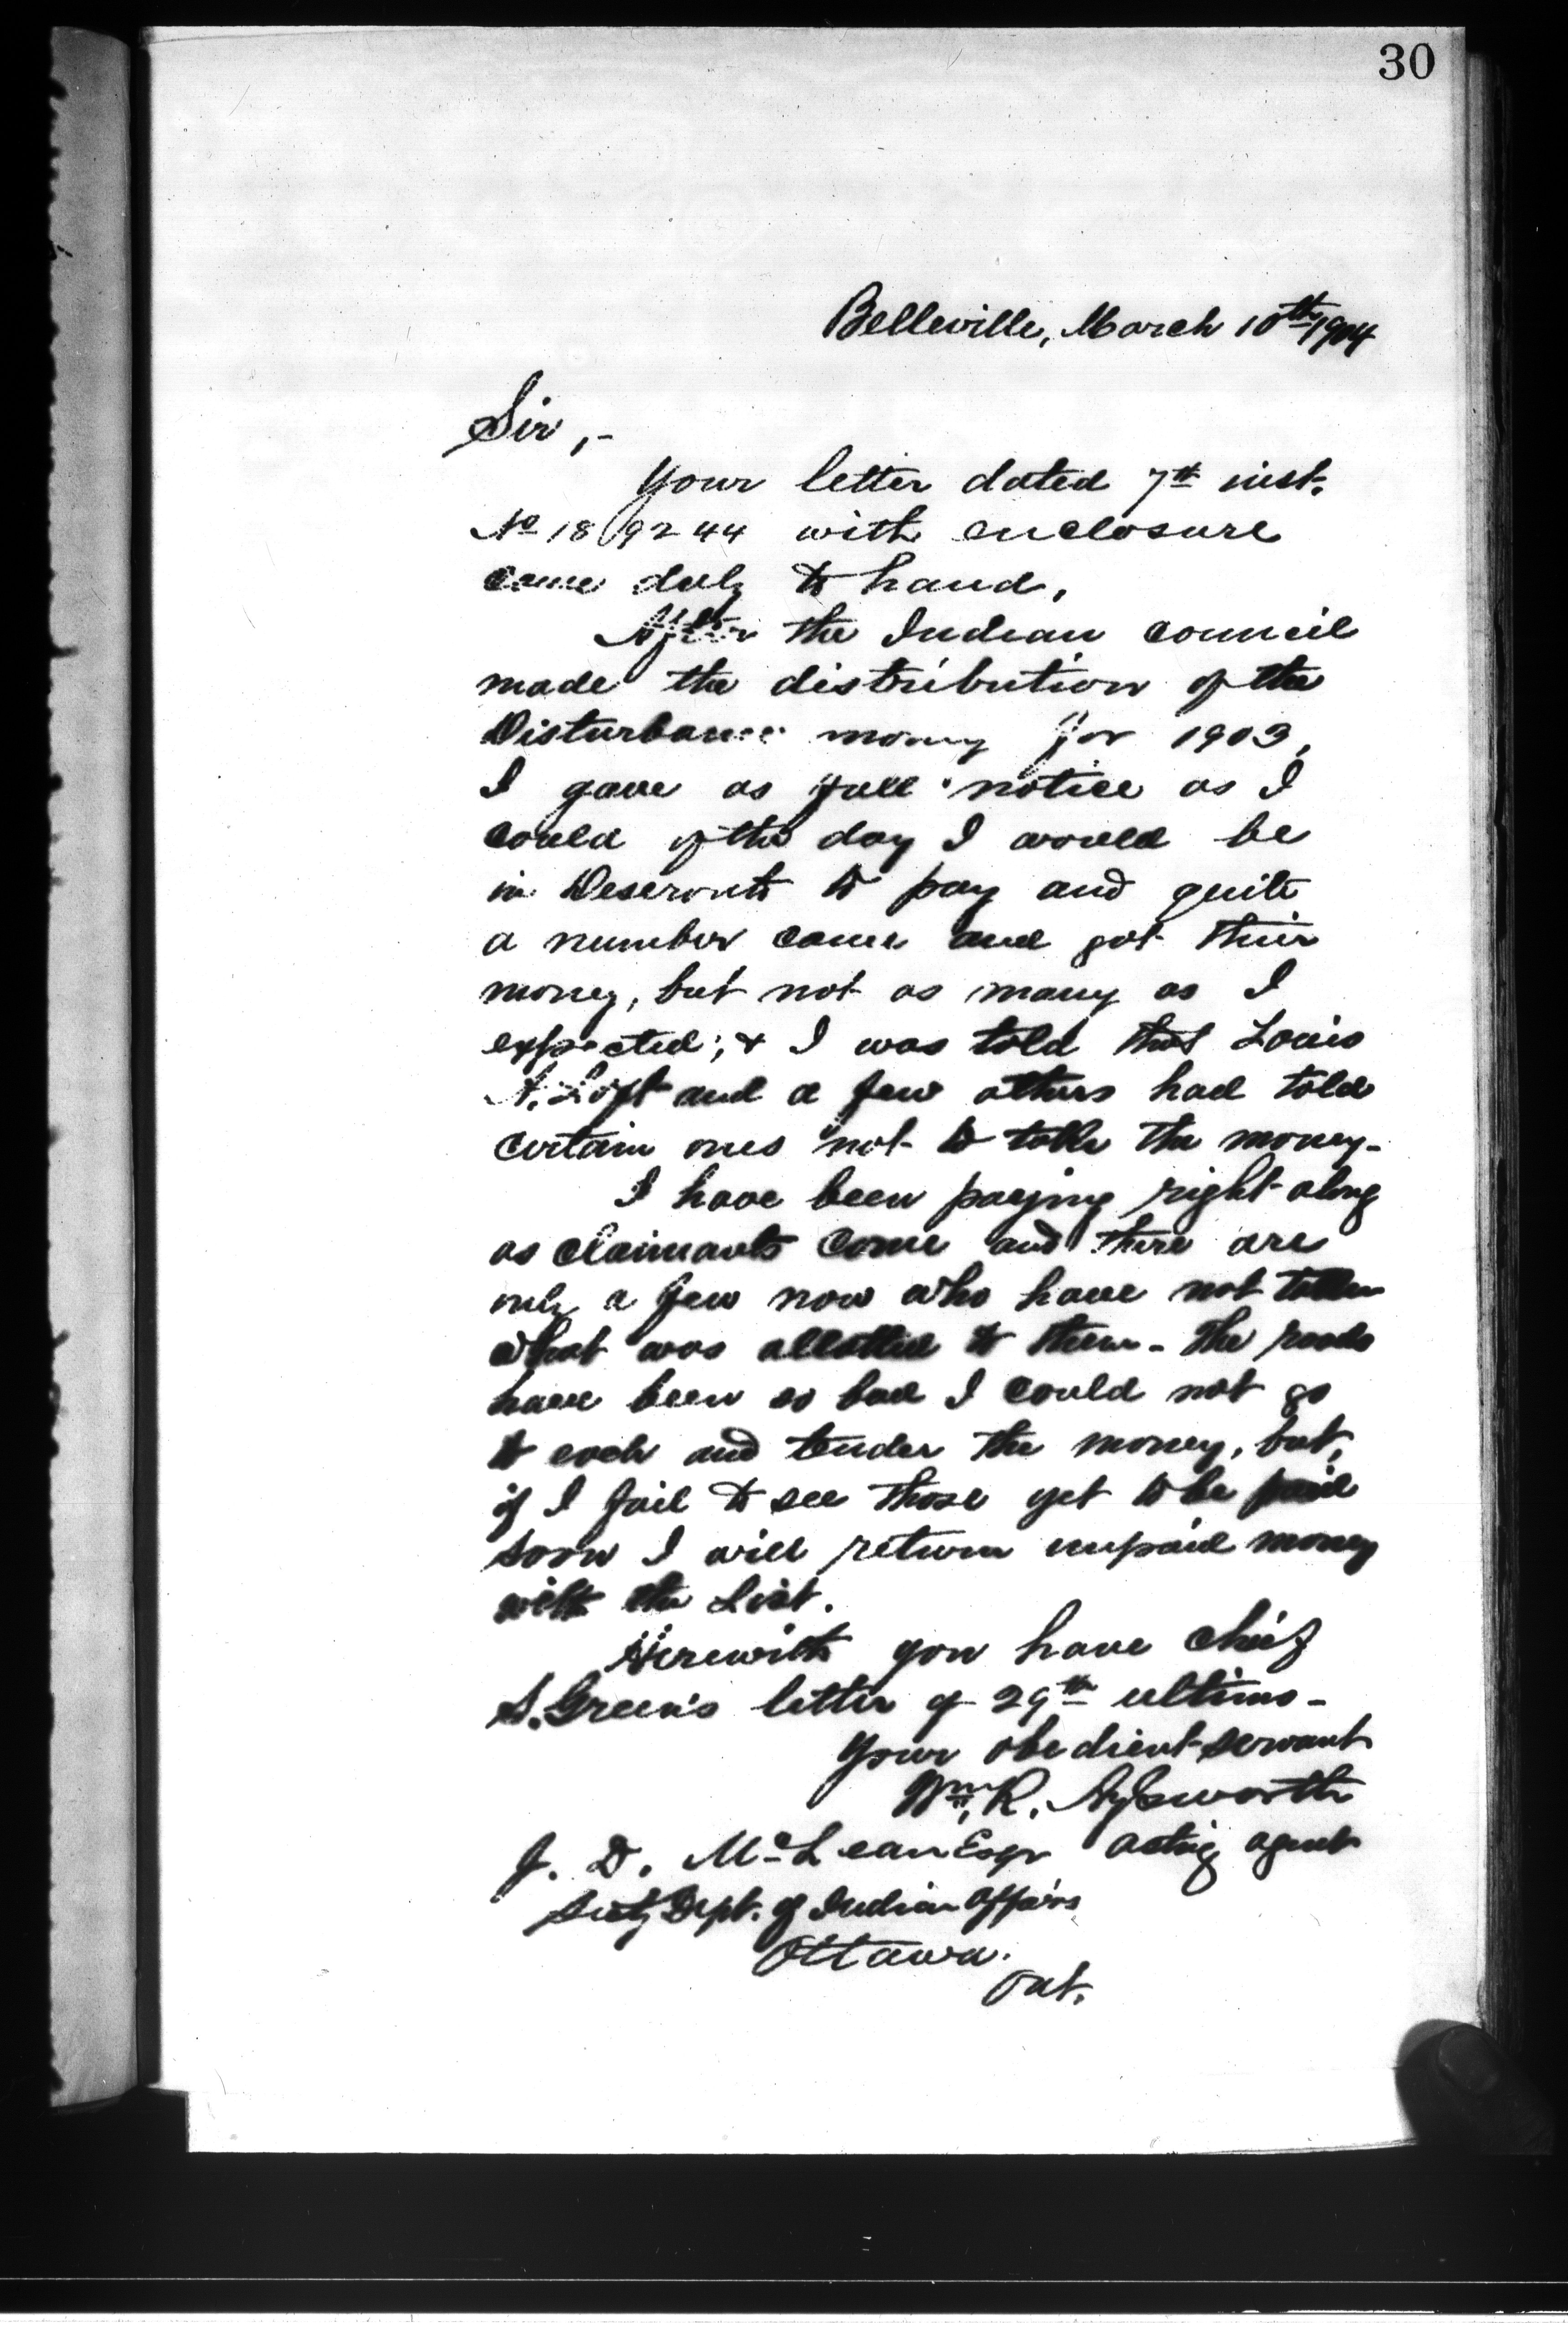 30
Belleville, March 10th 1904
Sir,-
Your letter dated 7th inst.
No 189244 with enclosure
came duly to hand.
After the Indian council
made the distribution of the
Disturbance money for 1903,
I gave as full notice as I
could of the day I would be
in Deseronto to pay and quite
a number came and got their
money, but not as many as I
expected; & I was told that Louis
A. Loft and a few others had told
certain ones not to take the money-
I have been paying right along
as claimants come and there are
only a few now who have not taken
what was allotted to them- The roads
have been so bad I could not go
to each and tender the money, but,
if I fail to see those yet to be paid
soon I will return unpaid money
with the List.
Herewith you have chief
S. Green's letter of 29th ultimo-
Your obedient servant
Wm. R. Aylsworth
J. D. McLean Esqr acting agent
Secty Dept. of Indian Affairs
Ottawa.
Ont.